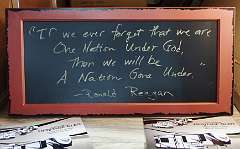 "If we ever forget that we are
One Nation Under God,
then we will be
A Nation Gone Under."
- Ronald Reagan